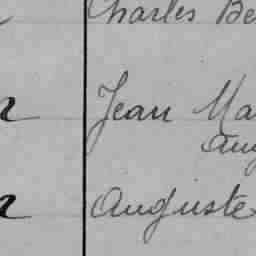 Charles Be
Jean Ma
Aug
Auguste